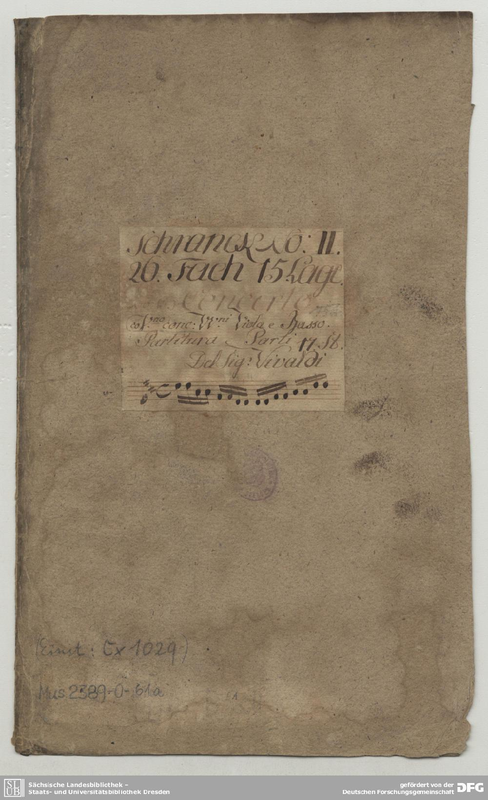 Schranck No: II.
26. Fach 15 Lage.
Concerto
co V.no conc: VV.ni Viola e Basso.
Partitura e Parti 17 St.
Del Sig.r Vivaldi
(einst: Cx 1029)
Mus 2389-O-61a
SLUB
Sächsische Landesbibliothek –
Staats- und Universitätsbibliothek Dresden
gefördert von der
Deutschen Forschungsgemeinschaft
DFG